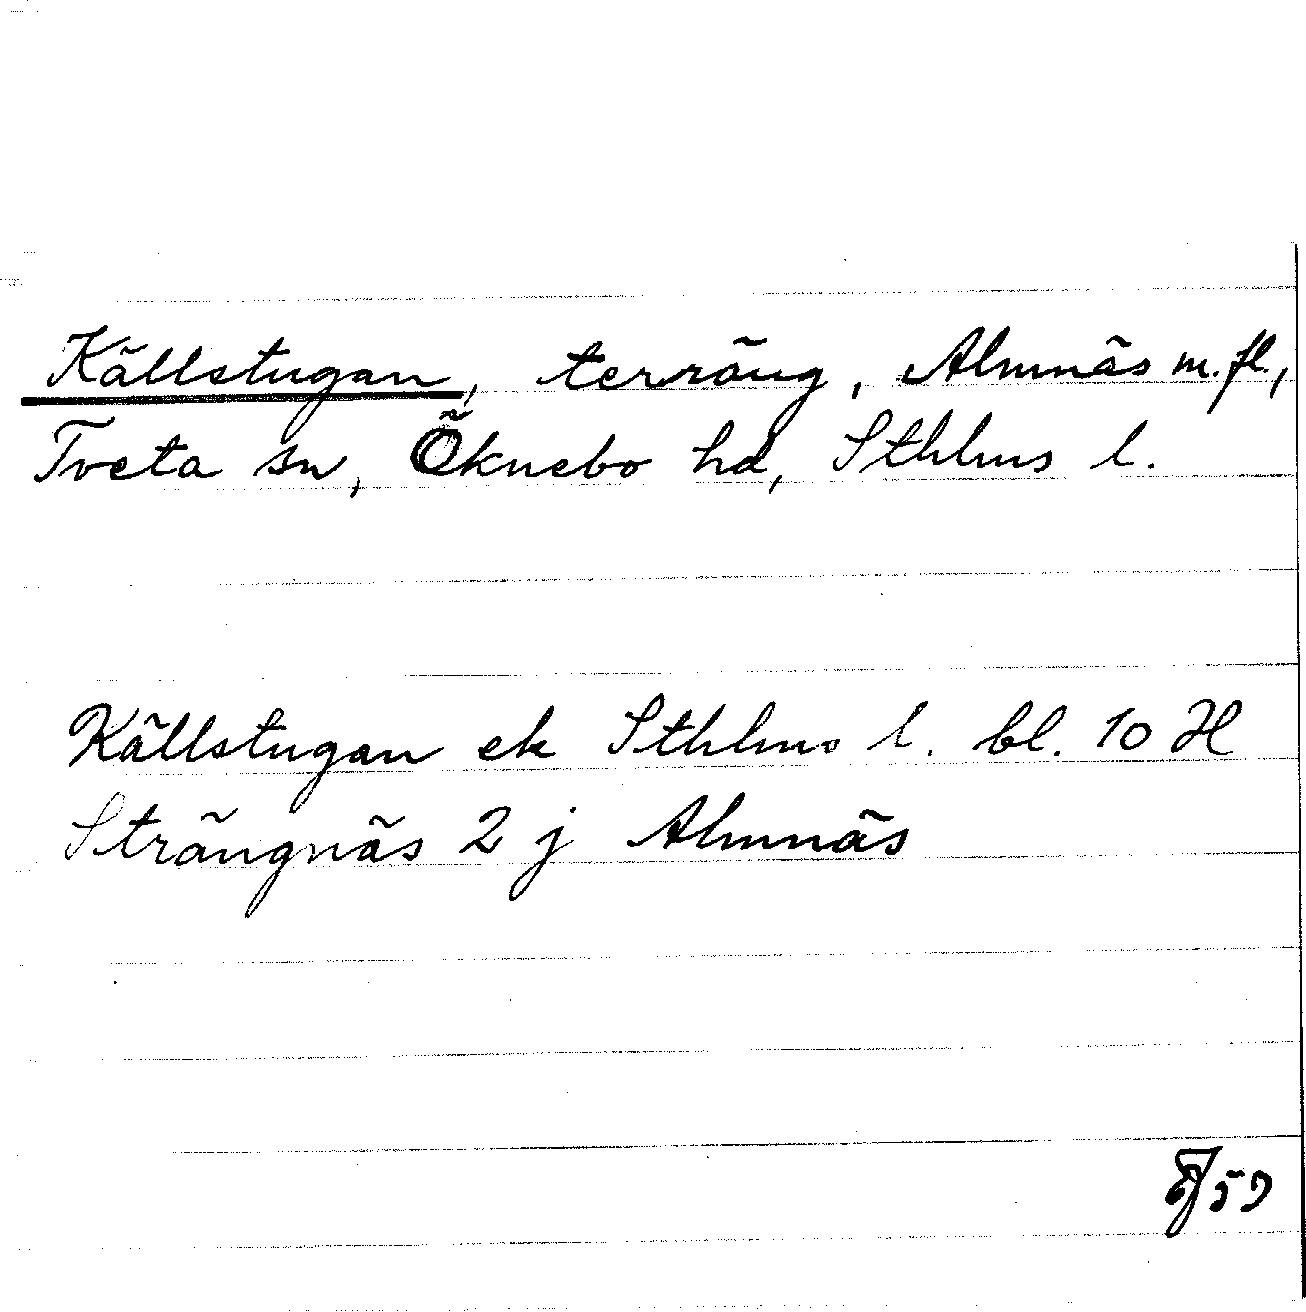 Källstugan, terräng, Almnäs m.fl.,
Tveta sn, Öknebo hd, Sthlms l.
Källstugan ek Sthlms l. bl. 10 H
Strängnäs 2 j Almnäs
59